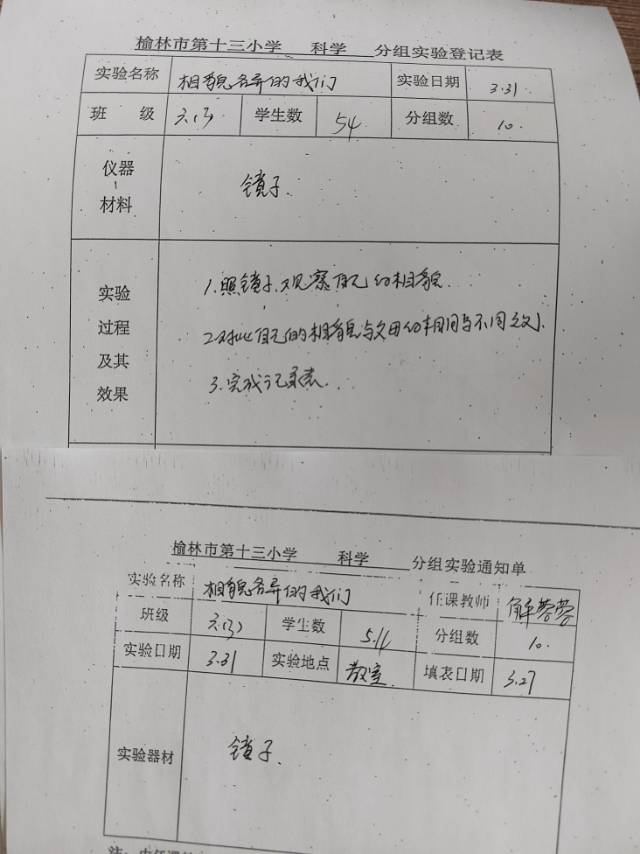 榆林市第十三小学 科学 分组实验登记表
实验名称 相貌各异的我们 实验日期 3.31
班 级 六(3) 学生数 54 分组数 10.
仪器、材料 镜子.
实验过程及其效果
1.照镜子,观察自己的相貌.
2.对比自己的相貌与父母的相同与不同之处.
3.完成记录表.
榆林市第十三小学 科学 分组实验通知单
实验名称 相貌各异的我们 任课教师
班级 六(3) 学生数 54 分组数 10.
实验日期 3.31 实验地点 教室 填表日期 3.27
实验器材 镜子.